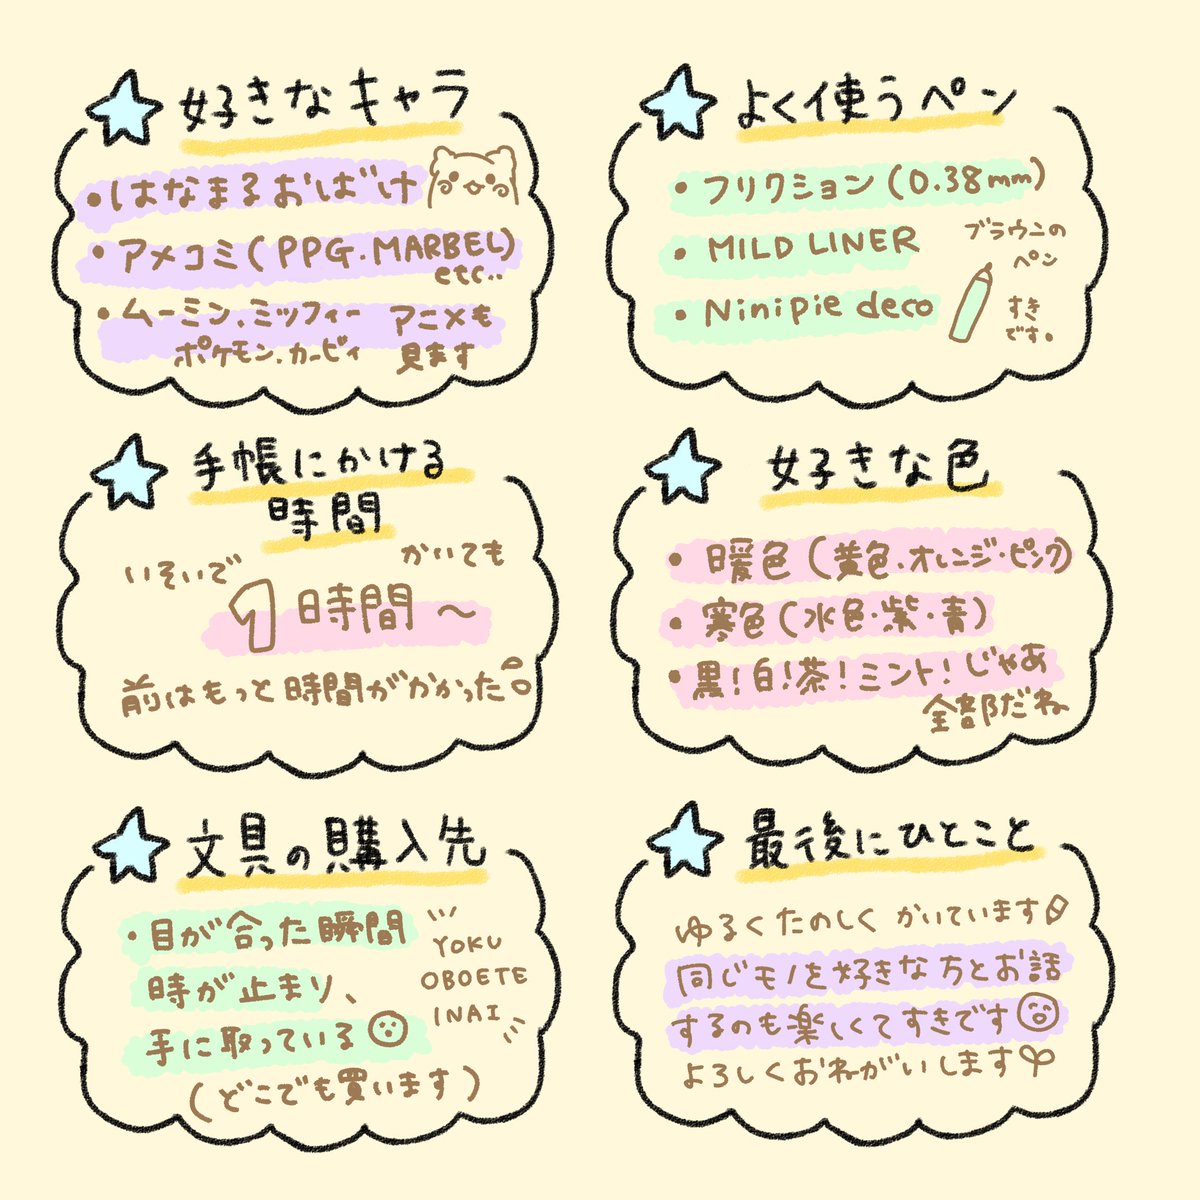 好きなキャラ
・はなまるおばけ
・アメコミ(PPG.MARBEL)
etc..
・ムーミン.ミッフィー
ポケモン.カービィ
アニメも
見ます
よく使うペン
・フリクション(0.38mm)
・MILD LINER
・Ninipie deco
ブラウニの
ペン
すき
です。
手帳にかける
時間
いそいで
かいても
1時間〜
前はもっと時間がかかった
好きな色
・暖色(黄色.オレンジ・ピンク)
・寒色(水色・紫・青)
・黒!白!茶!ミント!じゃあ
全部だね
文具の購入先
・目が合った瞬間
時が止まり、
手に取っている
(どこでも買います)
YOKU
OBOETE
INAI
最後にひとこと
ゆるくたのしくかいています
同じモノを好きな方とお話
するのも楽しくてすきです
よろしくおねがいします